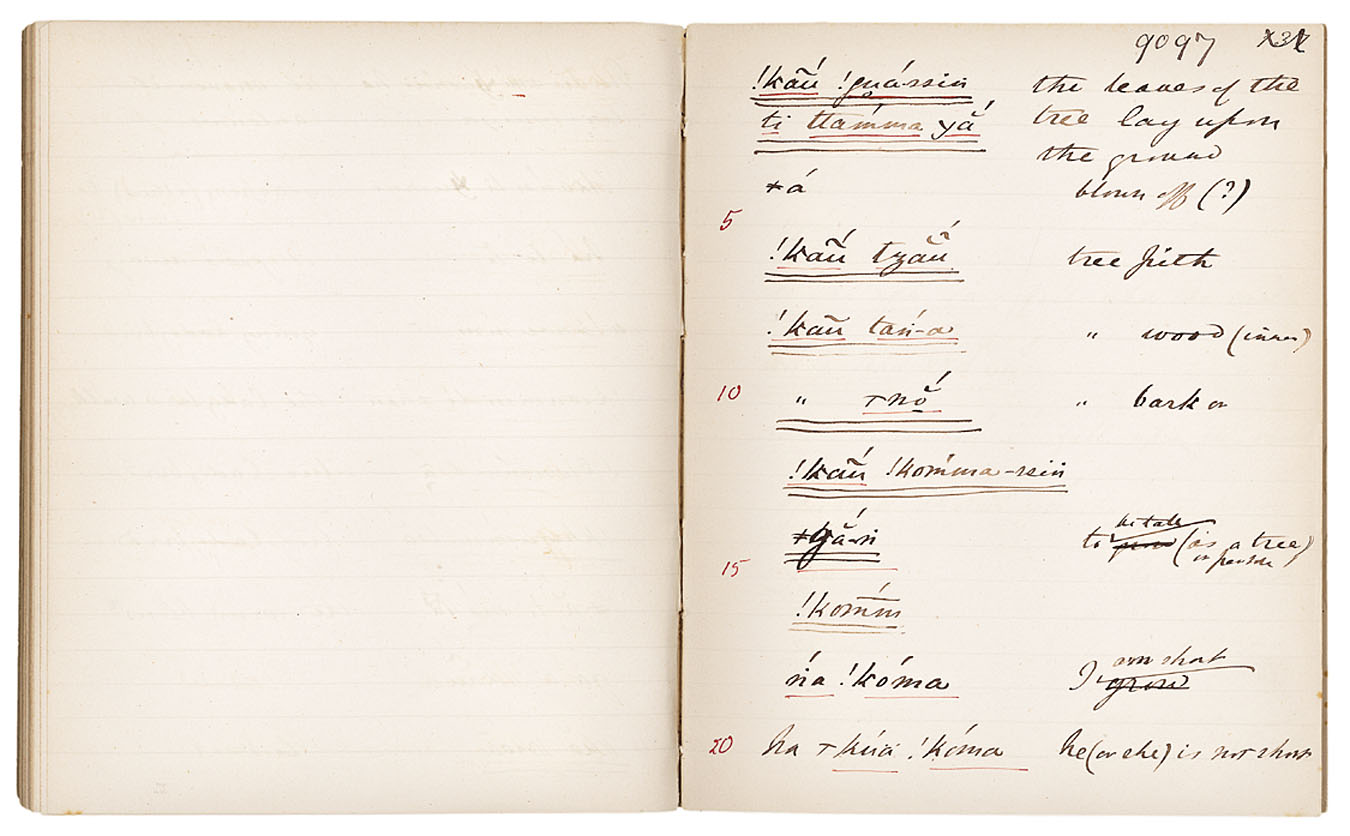 9097
!kãṹ !guá-ssin the leaves of the
ti ttamma yắ tree lay upon
the ground
á blown off (?)
5
!kãṹ tyãṹ tree pith
!kãũ tań-a " wood (inner)
10 " nộ " bark or
!kãṹ !komma-ssin
to be tall grow (as a tree)
or person
15
!komm
ńa !kóma I am short grow
20 ha !kóma he (or she) is not short